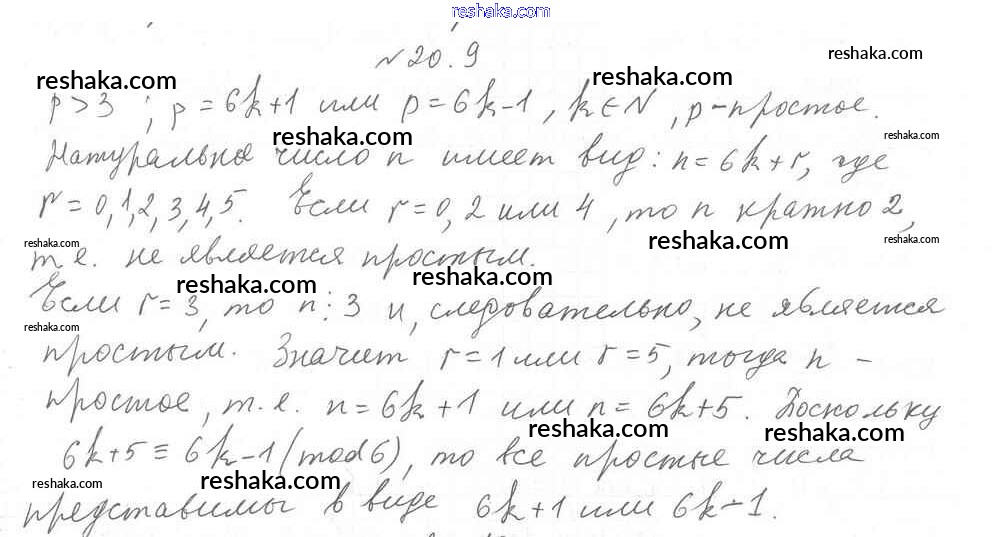 reshaka.com
№ 20.9
reshaka.com
reshaka.com
reshaka.com
p>3 ; p = 6k+1 или p = 6k-1, k∈N, p-простое.
reshaka.com
reshaka.com
Натуральное число n имеет вид: n = 6k+r, где
r = 0,1,2,3,4,5. Если r = 0,2 или 4, то n кратно 2,
reshaka.com
reshaka.com
reshaka.com
т.е. не является простым.
reshaka.com
reshaka.com
Если r = 3, то n⋮3 и, следовательно, не является
reshaka.com
простым. Значит r = 1 или r = 5, тогда n -
простое, т.е. n = 6k+1 или n = 6k+5. Поскольку
reshaka.com
reshaka.com
6k+5 ≡ 6k-1 (mod 6), то все простые числа
reshaka.com
reshaka.com
представимы в виде 6k+1 или 6k-1.